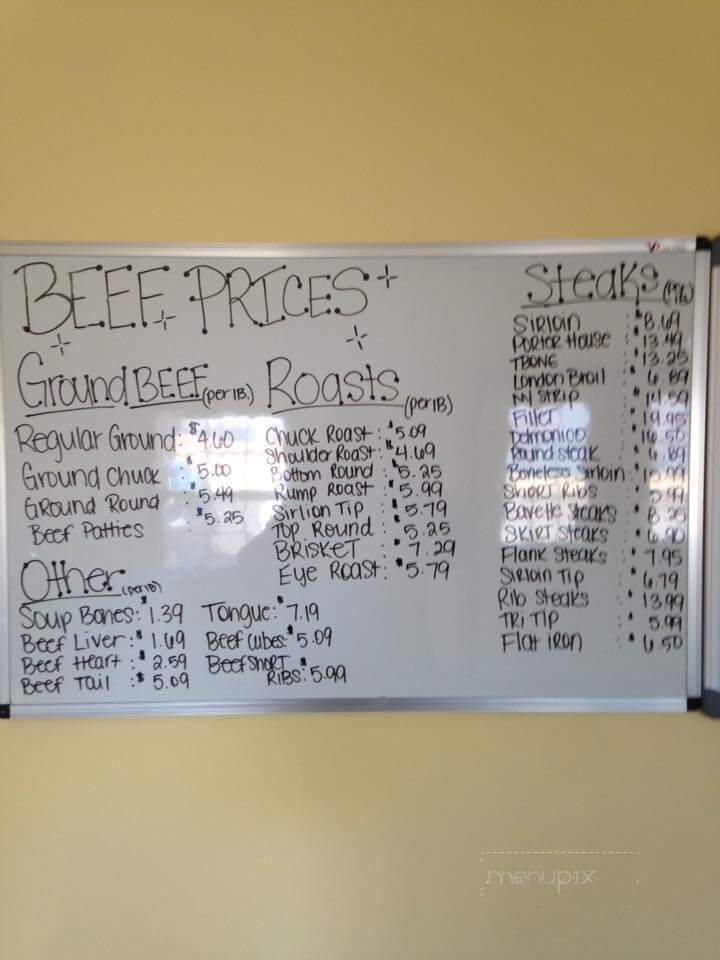 BEEF PRICES
Ground BEEF (per lB.)
Regular Ground: $4.60
Ground Chuck : $5.00
GRound Round : $5.49
Beef Patties : $5.25
Roasts (per lB)
Chuck Roast: $5.09
Shoulder Roast: $4.69
Bottom Round : $5.25
Rump Roast : $5.99
Sirlion Tip : $5.79
Top Round : $5.25
BRISKET : $7.29
Eye Roast: $5.79
Other (per lB)
Soup Bones: $1.39
Beef Liver: $1.69
Beef Heart : $2.59
Beef Tail : $5.09
Tongue: $7.19
Beef Cubes: $5.09
Beef Short
RIBS: $5.99
Steaks
Sirloin : $8.69
Porter House : $13.49
TBONE : $13.25
London Broil : $6.89
NY STRIP : $14.59
Fillet : $19.95
Delmonico : $16.50
Round steak : $6.89
Boneless Sirloin :
Short Ribs : $5.99
Bavette Steaks : $8.25
SKIRT STEAKS : $6.90
Flank Steaks : $7.95
Sirloin Tip : $6.79
Rib Steaks : $13.99
TRI TIP : $5.99
Flat iron : $6.50
menupix